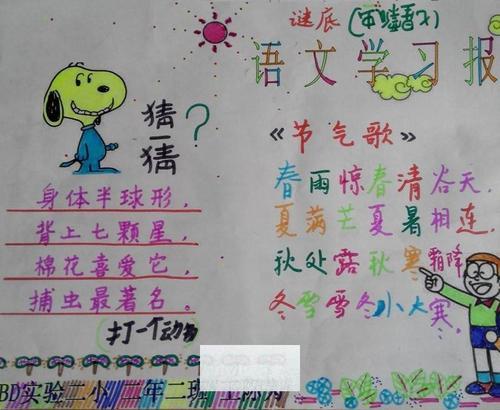 谜底
语文学习报
猜一猜?
身体半球形,
背上七颗星,
棉花喜爱它,
捕虫最著名。
打一个动物
《节气歌》
春雨惊春清谷天,
夏满芒夏暑相连,
秋处露秋寒霜降
冬雪雪冬小大寒,
BD实验二小 二年二班